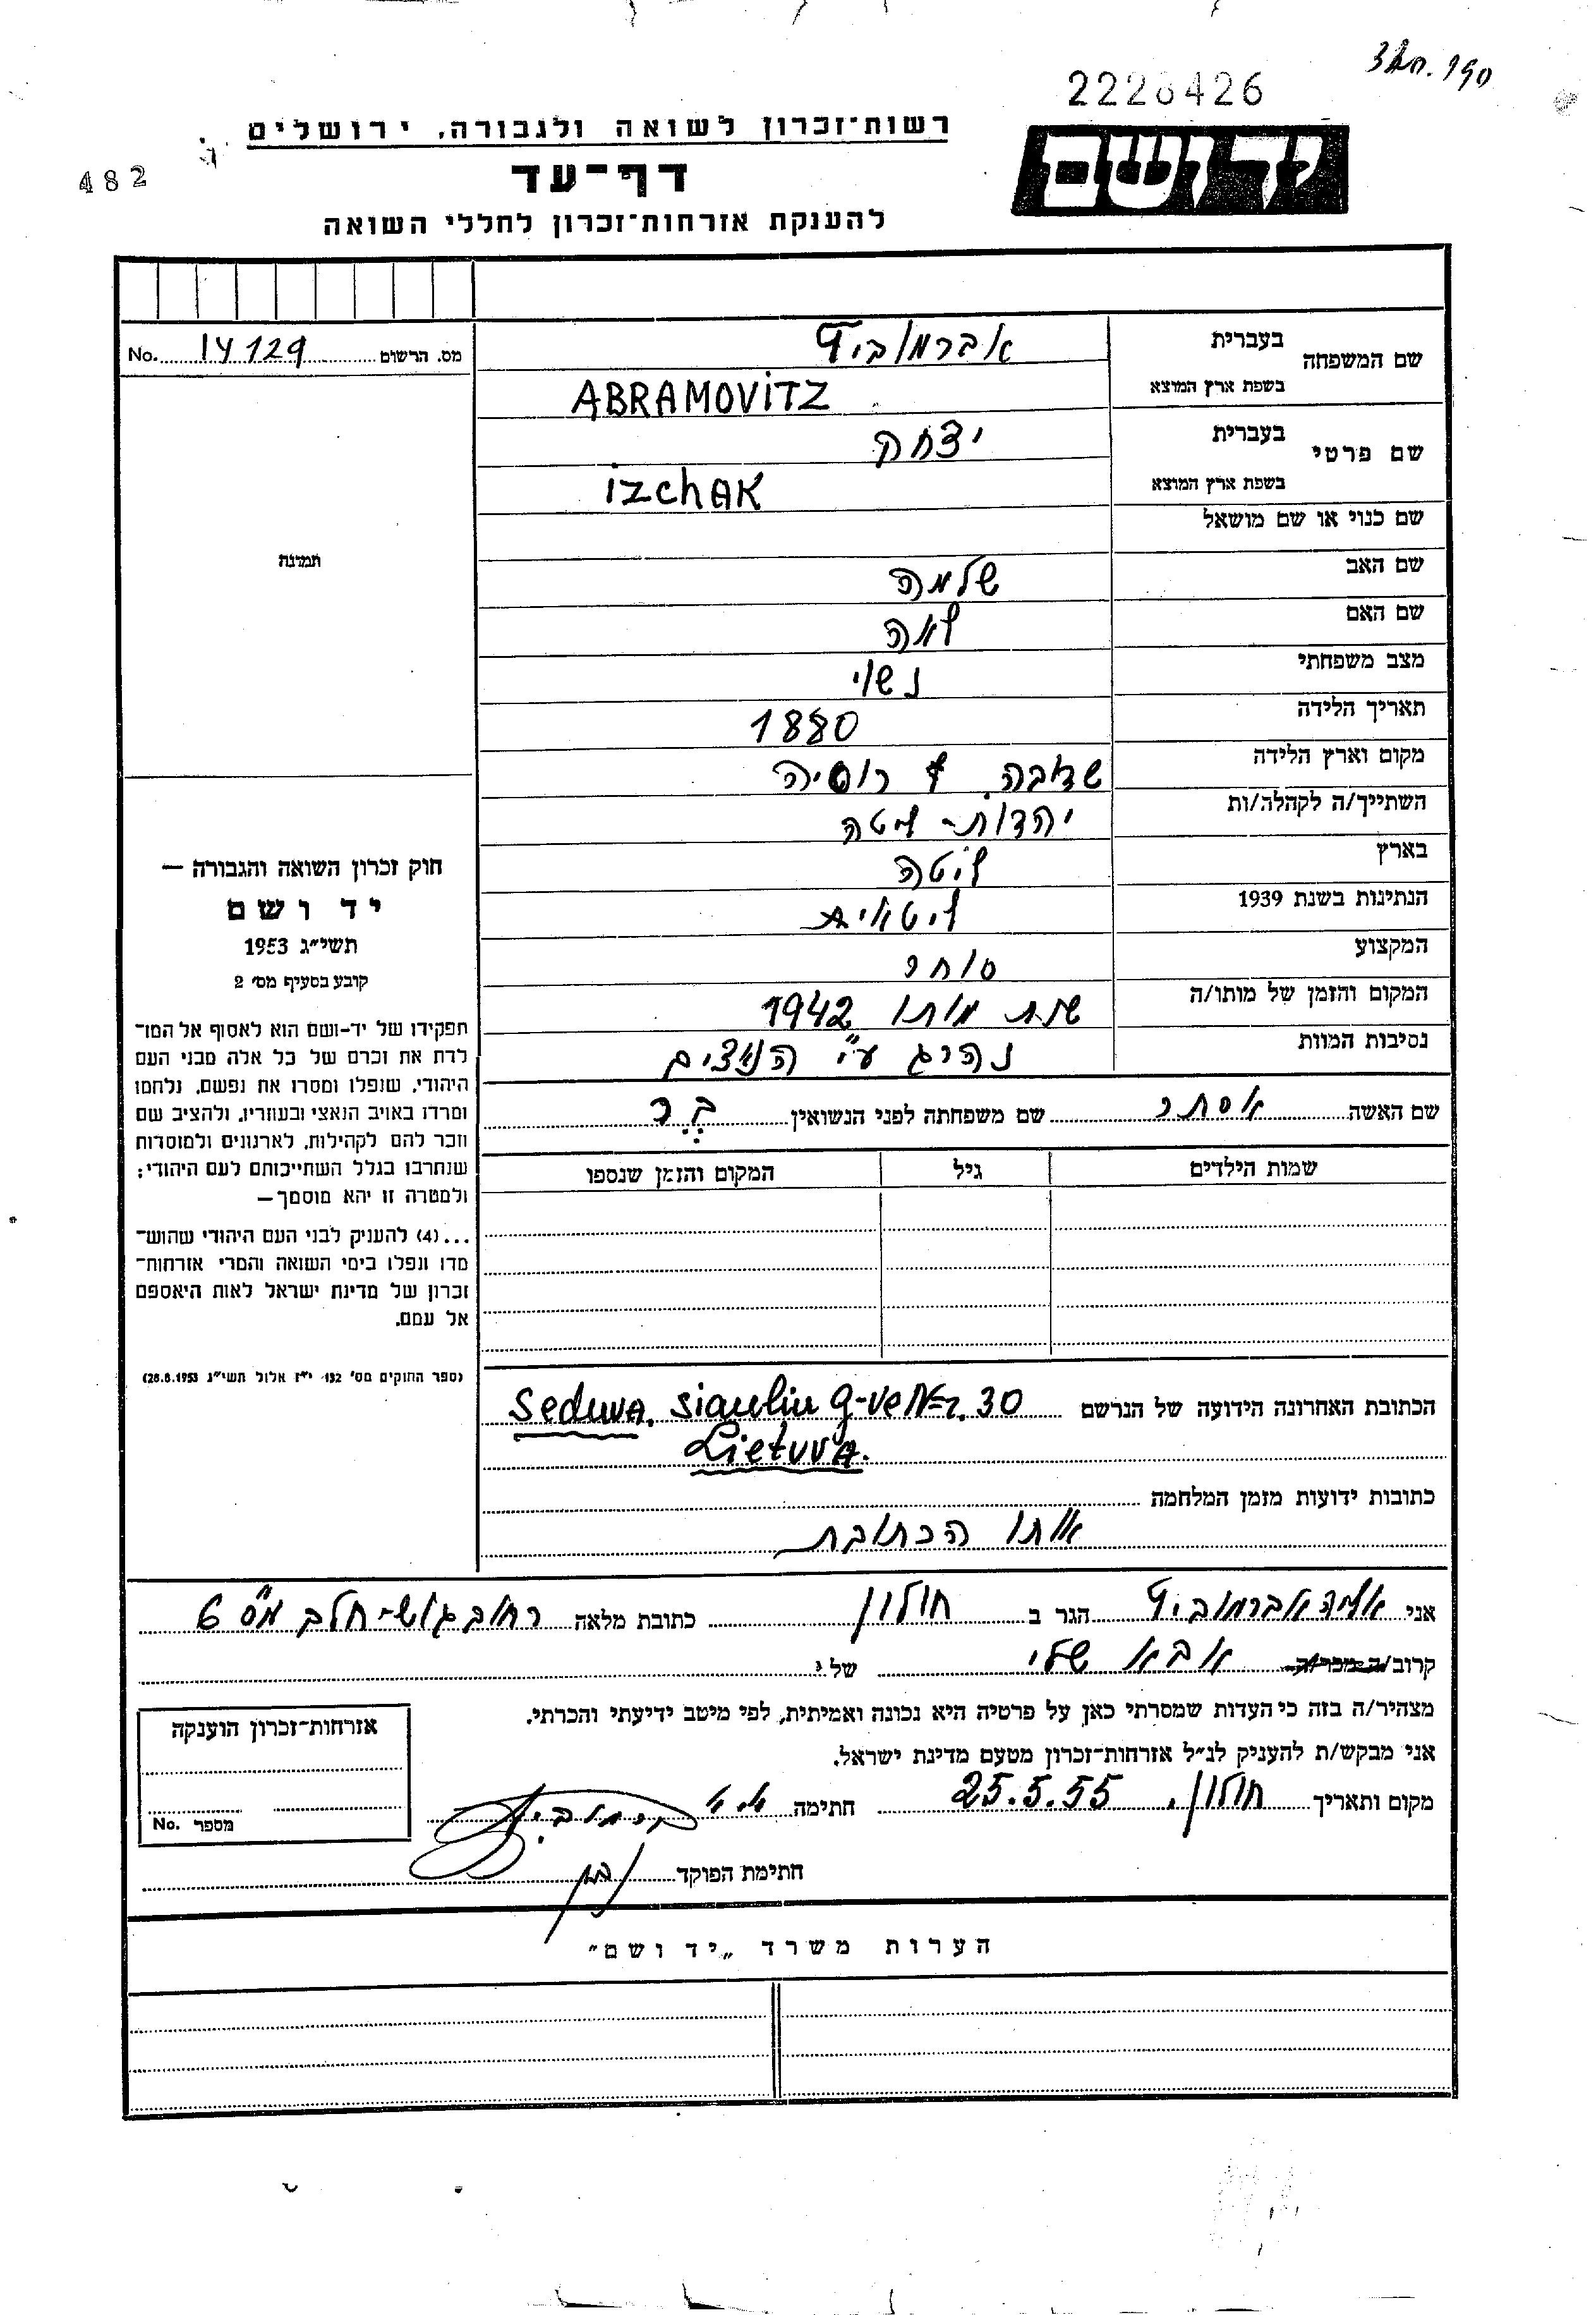 2228426
482
רשות-זכרון לשואה ולגבורה, ירושלים
יד ושם
דף-עד
להענקת אזרחות-זכרון לחללי השואה
מס. הרשום 14129 No.
תמונה
שם המשפחה
בעברית אברמוביץ
בשפת ארץ המוצא ABRAMOViTZ
שם פרטי
בעברית יצחק
בשפת ארץ המוצא izchAK
שם כנוי או שם מושאל
שם האב שלמה
שם האם לאה
מצב משפחתי נשוי
תאריך הלידה 1880
מקום וארץ הלידה שדובה. רוסיה
השתייך/ה לקהלה/ות יהדות-ליטה
בארץ ליטה
הנתינות בשנת 1939 ליטאית
המקצוע סוחר
המקום והזמן של מותו/ה שנת מותו 1942
נסיבות המוות נהרג ע"י הנאצים
שם האשה אסתר שם משפחתה לפני הנשואין
שמות הילדים גיל המקום והזמן שנספו
חוק זכרון השואה והגבורה —
יד ושם
תשי"ג 1953
קובע בסעיף מס' 2
תפקידו של יד-ושם הוא לאסוף אל המו־
לדת את זכרם של כל אלה מבני העם
היהודי, שנפלו ומסרו את נפשם, נלחמו
ומרדו באויב הנאצי ובעוזריו, ולהציב שם
וזכר להם לקהילות, לארגונים ולמוסדות
שנחרבו בגלל השתייכותם לעם היהודי;
ולמטרה זו יהא מוסמך—
...(4) להעניק לבני העם היהודי שהוש־
מדו ונפלו בימי השואה והמרי אזרחות־
זכרון של מדינת ישראל לאות היאספם
אל עמם.
(ספר החוקים מס' 132 י"ז אלול תשי"ג 28.8.1953)
הכתובת האחרונה הידועה של הנרשם Seduva. Siauliu g-ve Nr. 30
Lietuva.
כתובות ידועות מזמן המלחמה
אותו הכתובת
אני אליה אברמוביץ הגר ב חולון כתובת מלאה רחוב גוש-חלב מס 6
קרוב/ה מכר/ה אבא שלי של
מצהיר/ה בזה כי העדות שמסרתי כאן על פרטיה היא נכונה ואמיתית, לפי מיטב ידיעתי והכרתי.
אני מבקש/ת להעניק לנ"ל אזרחות-זכרון מטעם מדינת ישראל.
מקום ותאריך חולון, 25.5.55 חתימה
חתימת הפוקד
אזרחות-זכרון הוענקה
מספר No.
הערות משרד „יד ושם"